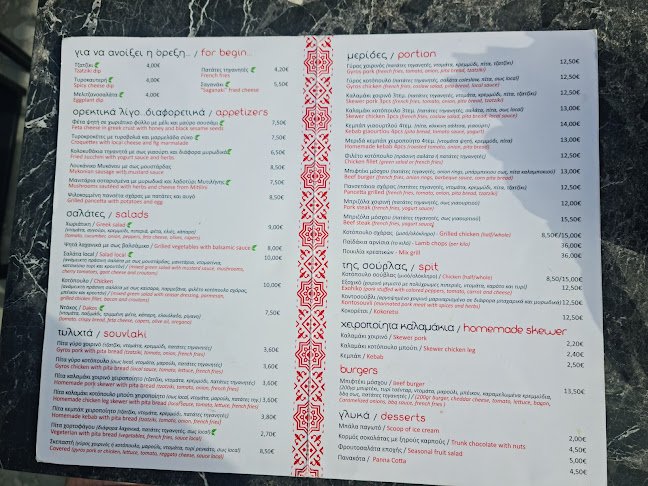 για να ανοίξει η όρεξη... / for begin...
Τζατζίκι
Tzatziki dip
4,00€
Τυροκαυτερή
Spicy cheese dip
4,00€
Μελιτζανοσαλάτα
Eggplant dip
4,00€
Πατάτες τηγανητές
French fries
4,20€
Σαγανάκι
"Saganaki" fried cheese
5,50€
ορεκτικά λίγο...διαφορετικά / appetizers
Φέτα ψητή σε χωριάτικο φύλλο με μέλι και μαύρο σουσάμι
Feta cheese in greek crust with honey and black sesame seeds
7,50€
Τυροκροκέτες με τυροβολιά και μαρμελάδα σύκο
Croquettes with local cheese and fig marmalade
7,50€
Κολοκυθάκια τηγανητά με σως γιαούρτι και διάφορα μυρωδικά
Fried zucchini with yogurt sauce and herbs
6,50€
Λουκάνικο Μυκόνου με σως μουστάρδας
Mykonian sausage with mustard sauce
7,50€
Μανιτάρια σοταρισμένα με μυρωδικά και λαδοτύρι Μυτιλήνης
Mushrooms sauteed with herbs and cheese from Mitilini
7,50€
Ψιλοκομμένη πανσέτα σχάρας με πατάτες και αυγό
Grilled pancetta with potatoes and egg
8,50€
σαλάτες / salads
Χωριάτικη / Greek salad
9,00€
(tomato, cucumber, onion, peppers, feta cheese, olives, capers)
Ψητά λαχανικά με σως βαλσάμικο / Grilled vegetables with balsamic sauce
8,00€
Σαλάτα local / Salad local
10,00€
Κοτόπουλο / Chicken
10,00€
grilled chicken fillet, bacon and croutons)
Ντάκος / Dakos
7,50€
(tomato, crispy bread, feta cheese, capers, olive oil, oregano)
τυλιχτά / souvlaki
Πίτα γύρο χοιρινό (τζατζίκι, ντομάτα, κρεμμύδι, πατάτες τηγανητές)
Gyros pork with pita bread (tzatziki, tomato, onion, french fries)
3,60€
Πίτα γύρο κοτόπουλο (σως local, ντομάτα, μαρούλι, πατάτες τηγανητές)
Gyros chicken with pita bread (local sauce, tomato, lettuce, french fries)
3,60€
Πίτα καλαμάκι χοιρινό χειροποίητο (τζατζίκι, ντομάτα, κρεμμύδι, πατάτες τηγανητές)
Homemade pork skewer with pita bread (tzatziki, tomato, onion, french fries)
3,60€
Πίτα καλαμάκι κοτόπουλο μπούτι χειροποίητο (σως local, ντομάτα, μαρούλι, πατάτες τηγ.)
Homemade chicken leg skewer with pita bread (local sauce, tomato, lettuce, french fries)
3,80€
Πίτα κεμπάπ χειροποίητο (τζατζίκι, ντομάτα, κρεμμύδι, πατάτες τηγανητές)
Homemade kebab with pita bread (tzatziki, tomato, onion, french fries)
3,80€
Πίτα χορτοφάγου (διάφορα λαχανικά, πατάτες τηγανητές, σως local)
Vegetarian with pita bread (vegetables, french fries, sauce local)
2,70€
Σκεπαστή (γύρος χοιρινός ή κοτόπουλο, μαρούλι, ντομάτα, τυρί ρεγκάτο, σως local)
Covered (gyros pork or chicken, lettuce, tomato, reggato cheese, sauce local)
8,50€
μερίδες / portion
Γύρος χοιρινός (πατάτες τηγανητές, ντομάτα, κρεμμύδι, πίτα, τζατζίκι)
Gyros pork (french fries, tomato, onion, pita bread, tzatziki)
12,50€
Γύρος κοτόπουλο (πατάτες τηγανητές, σαλάτα coleslow, πίτα, σως local)
Gyros chicken (french fries, coslow salad, pita bread, local sauce)
12,50€
Καλαμάκι χοιρινό 3τεμ. (πατάτες τηγανητές, ντομάτα, κρεμμύδι, πίτα, τζατζίκι)
Skewer pork 3pcs (french fries, tomato, onion, pita bread, tzatziki)
12,50€
Καλαμάκι κοτόπουλο 3τεμ. (πατάτες τηγανητές, σαλάτα coleslow, πίτα, σως local)
Skewer chicken 3pcs (french fries, coslow salad, pita bread, local sauce)
13,00€
Κεμπάπ γιαουρτλού 4τεμ. (πίτα, κόκκινη σάλτσα, γιαούρτι)
Kebab giaourtlou 4pcs (pita bread, tomato sauce, yogurt)
14,00€
Μερίδα κεμπάπ χειροποίητο 4τεμ. (ντομάτα ψητή, κρεμμύδι, πίτα)
Homemade kebab 4pcs (roasted tomato, onion, pita bread)
13,00€
Φιλέτο κοτόπουλο (πράσινη σαλάτα ή πατάτες τηγανητές)
Chicken fillet (green salad or french fries)
12,50€
Μπιφτέκι μόσχου (πατάτες τηγανητές, onion rings, μπάρμπεκιου σως, πίτα καλαμποκίσια)
Beef burger (french fries, onion rings, barbeque sauce, corn pita bread)
13,00€
Πανσετάκια σχάρας (πατάτες τηγανητές, ντομάτα, κρεμμύδι, πίτα, τζατζίκι)
Pancetta grilled (french fries, tomato, onion, pita bread, tzatziki)
12,50€
Μπριζόλα χοιρινή (πατάτες τηγανητές, σως γιαουρτιού)
Pork steak (french fries, yogurt sauce)
12,00€
Μπριζόλα μόσχου (πατάτες τηγανητές, σως γιαουρτιού)
Beef steak (french fries, yogurt sauce)
15,50€
Κοτόπουλο σχάρας (μισό/ολόκληρο) - Grilled chicken (half/whole)
8,50/15,00€
Παϊδάκια αρνίσια (το κιλό) - Lamb chops (per kilo)
36,00€
Ποικιλία κρεατικών - Mix grill
36,00€
της σούβλας / spit
Κοτόπουλο σούβλας (μισό/ολόκληρο) / Chicken (half/whole)
8,50/15,00€
Exohiko (pork stuffed with colored peppers, tomato, carrot and cheese)
12,50€
Κοντοσούβλι (αρωματικό χοιρινό μαριναρισμένο σε διάφορα μπαχαρικά και μυρωδικά)
Kontosouvli (marinated pork meat with spices and herbs)
12,50€
Κοκορέτσι / Kokoretsi
12,50€
χειροποίητα καλαμάκια / homemade skewer
Καλαμάκι χοιρινό / Skewer pork
2,20€
Καλαμάκι κοτόπουλο μπούτι / Skewer chicken leg
2,40€
Κεμπάπ / Kebab
2,40€
burgers
Μπιφτέκι μόσχου / Beef burger
13,50€
γλυκά / desserts
Μπάλα παγωτό / Scoop of ice cream
2,00€
Κορμός σοκολάτας με ξηρούς καρπούς / Trunk chocolate with nuts
4,50€
Φρουτοσαλάτα εποχής / Seasonal fruit salad
5,00€
Πανακότα / Panna Cotta
4,50€